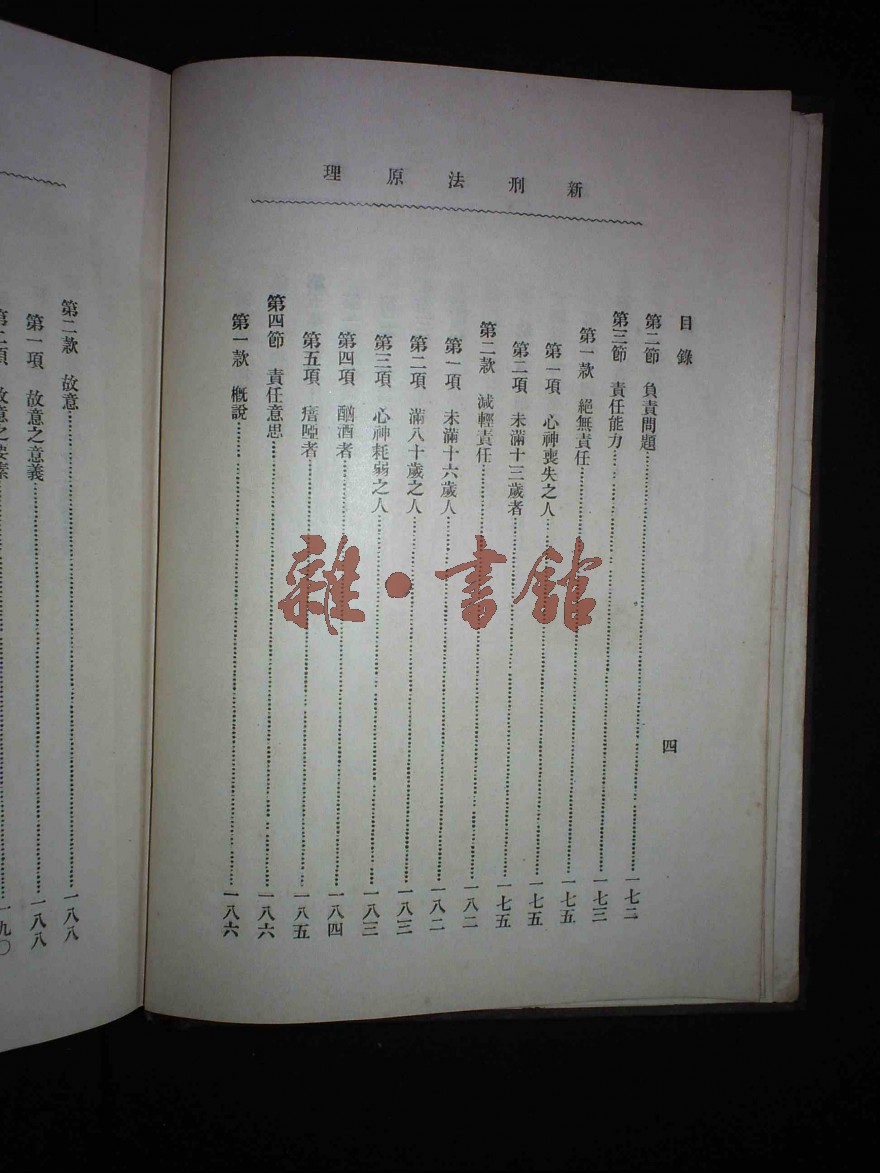 新刑法原理
目錄
四
第二節 負責問題……一七二
第三節 責任能力……一七三
第一款 絕無責任……一七五
第一項 心神喪失之人……一七五
第二項 未滿十三歲者……一七五
第二款 減輕責任……一八二
第一項 未滿十六歲人……一八二
第二項 滿八十歲之人……一八三
第三項 心神耗弱之人……一八三
第四項 酗酒者……一八四
第五項 瘖啞者……一八五
第四節 責任意思……一八六
第一款 概說……一八六
第二款 故意……一八八
第一項 故意之意義……一八八
第二項 故意之要素……一九〇
雜·書館